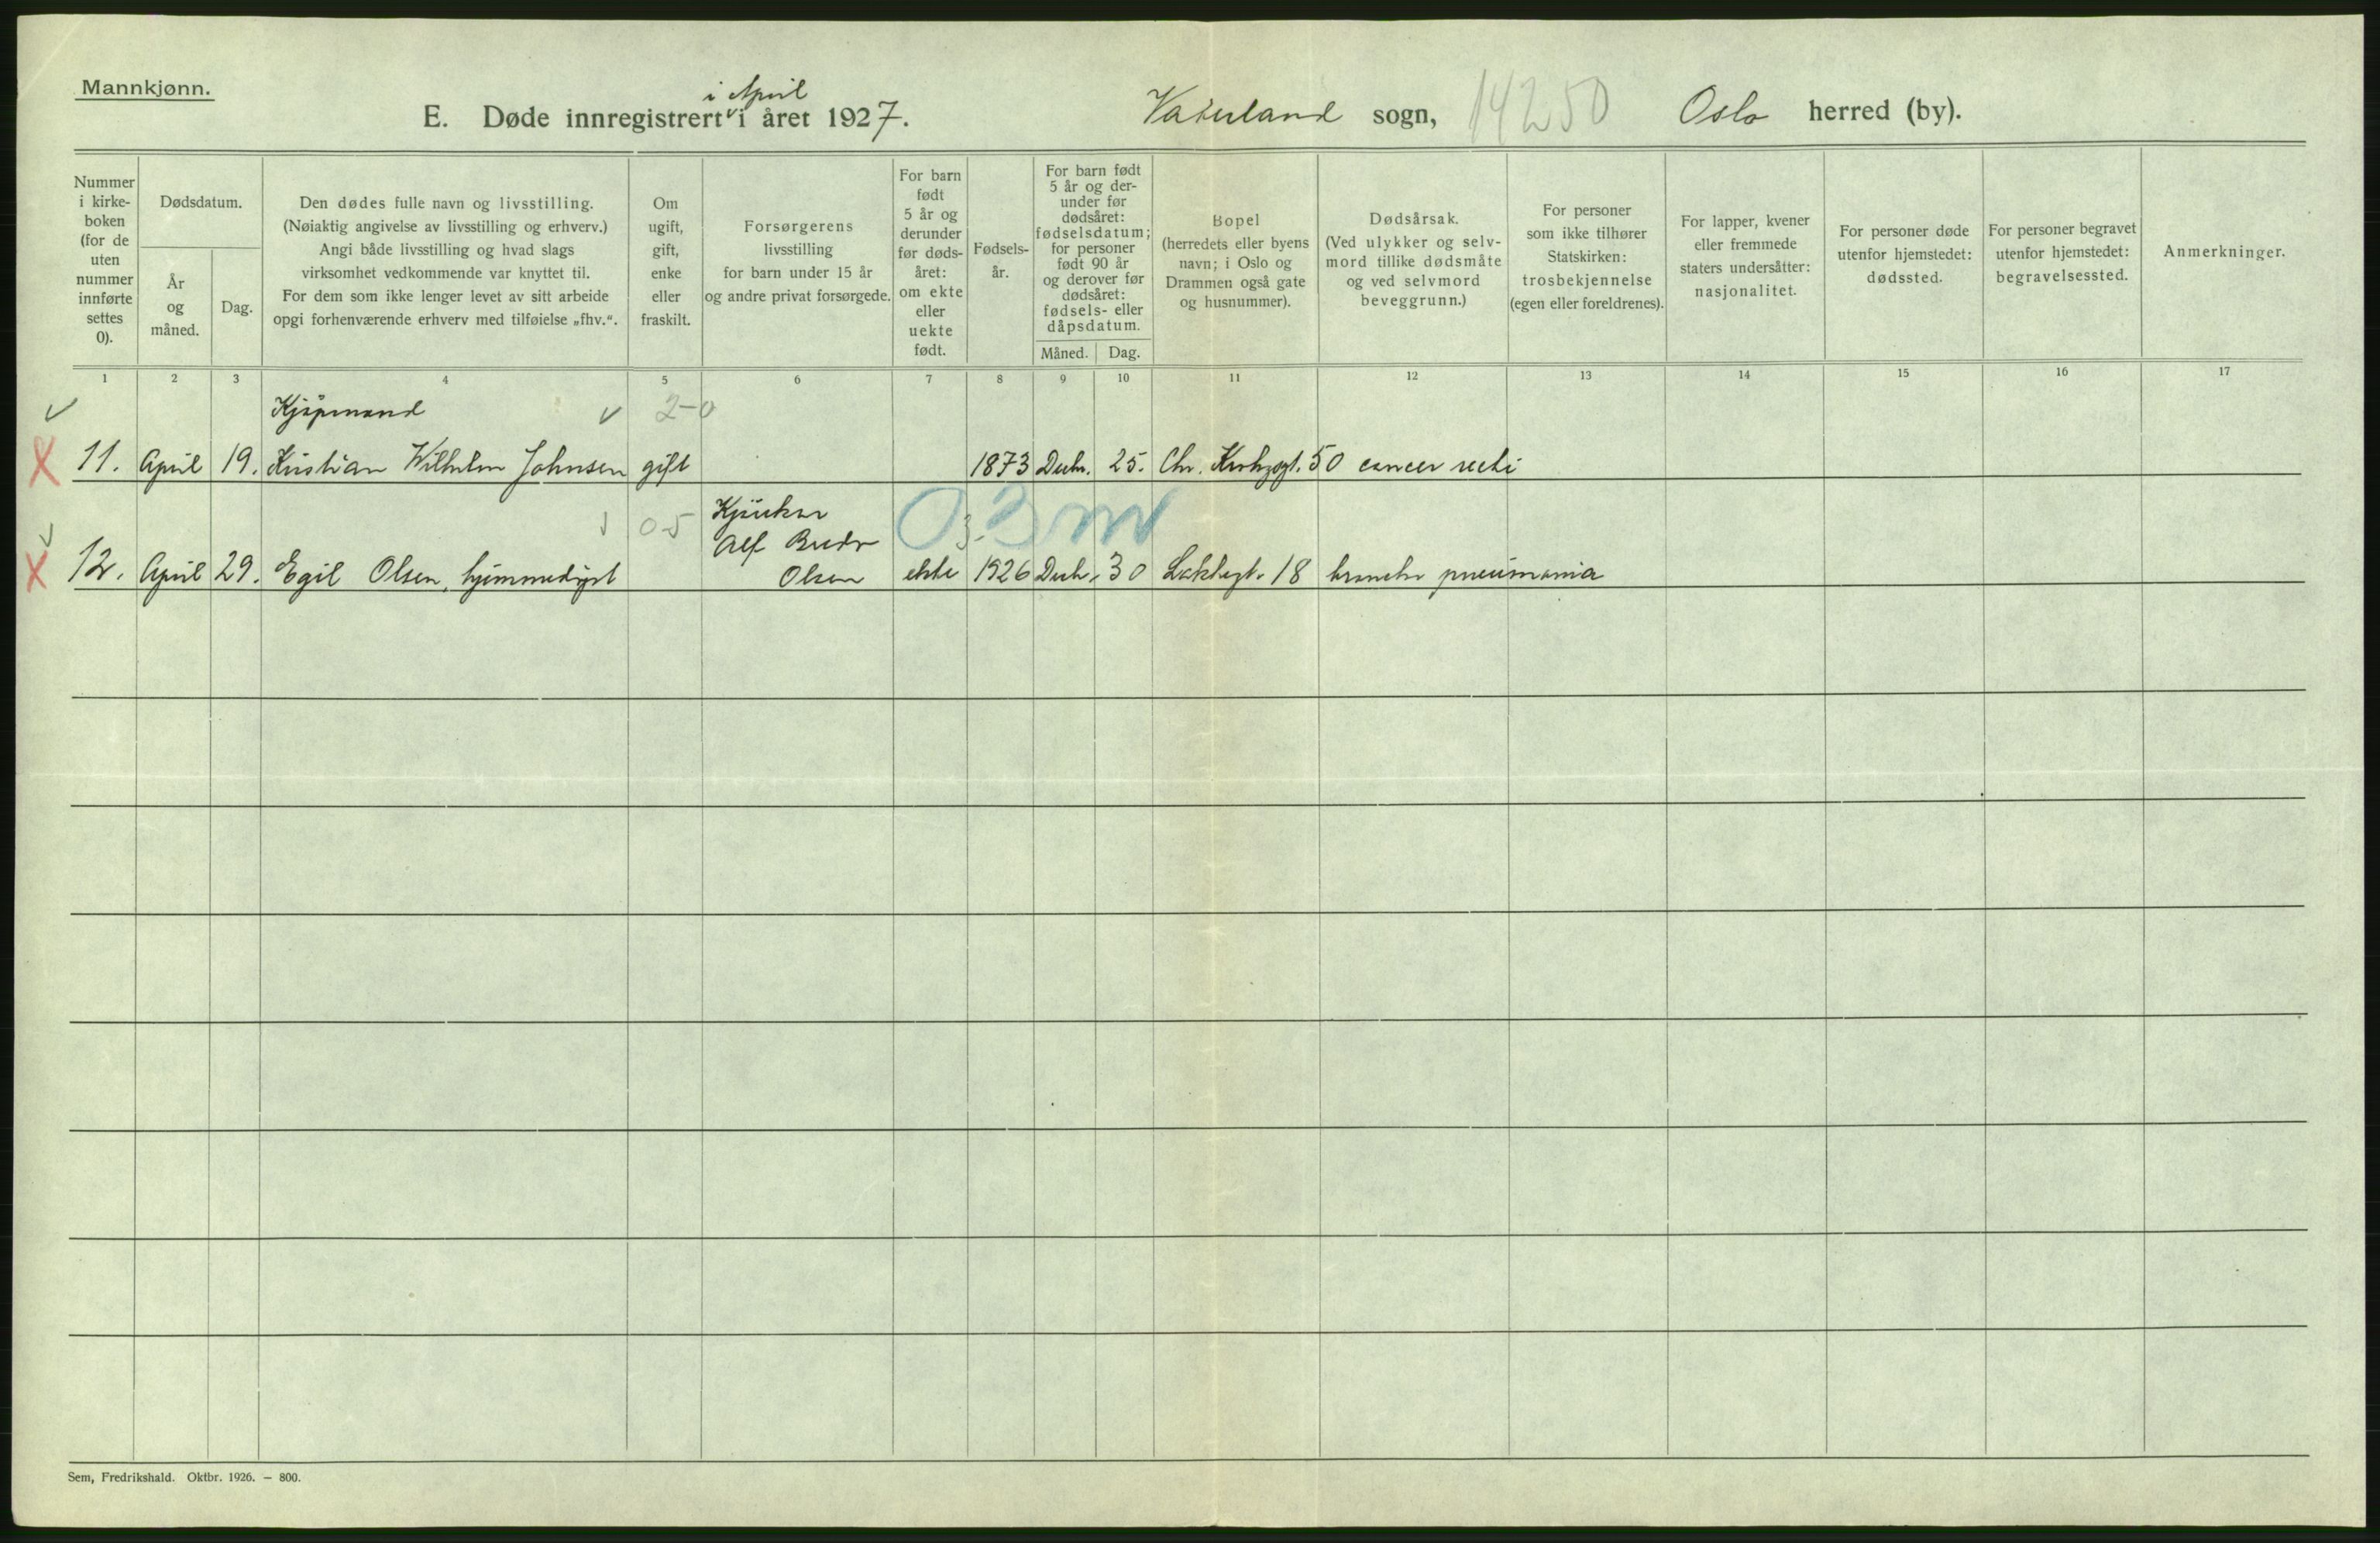 Mannkjønn.
i April
E. Døde innregistrert i året 1927.
Vaterland sogn, 14250 Oslo herred (by).
Nummer i kirke- boken (for de uten nummer innførte settes 0).
Dødsdatum.
År og måned.
Dag.
Den dødes fulle navn og livsstilling.
(Nøiaktig angivelse av livsstilling og erhverv.)
Angi både livsstilling og hvad slags
virksomhet vedkommende var knyttet til.
For dem som ikke lenger levet av sitt arbeide
opgi forhenværende erhverv med tilføielse „fhv.“.
Om ugift, gift, enke eller fraskilt.
Forsørgerens
livsstilling
for barn under 15 år
og andre privat forsørgede.
For barn født 5 år og derunder før døds- året: om ekte eller uekte født.
Fødsels- år.
For barn født 5 år og der- under før dødsåret: fødselsdatum; for personer født 90 år og derover før dødsåret: fødsels- eller dåpsdatum.
Måned. Dag.
Bopel
(herredets eller byens
navn; i Oslo og
Drammen også gate
og husnummer).
Dødsårsak.
(Ved ulykker og selv-
mord tillike dødsmåte
og ved selvmord
beveggrunn.)
For personer
som ikke tilhører
Statskirken:
trosbekjennelse
(egen eller foreldrenes).
For lapper, kvener
eller fremmede
staters undersåtter:
nasjonalitet.
For personer døde
utenfor hjemstedet:
dødssted.
For personer begravet
utenfor hjemstedet:
begravelsessted.
Anmerkninger.
1 2 3 4 5 6 7 8 9 10 11 12 13 14 15 16 17
Kjøpmand 2-0
11. April 19. Kristian Wilhelm Johnsen gift 1873 Decbr. 25. Chr. Krohgsgt. 50 cancer recti
0-5 0 3 m
Alf
12. April 29. Egil Olsen, hjemmedøpt Olsen ekte 1926 Decb. 30 Lakkegt. 18 broncho pneumonia
Sem, Fredrikshald. Oktbr. 1926. — 800.